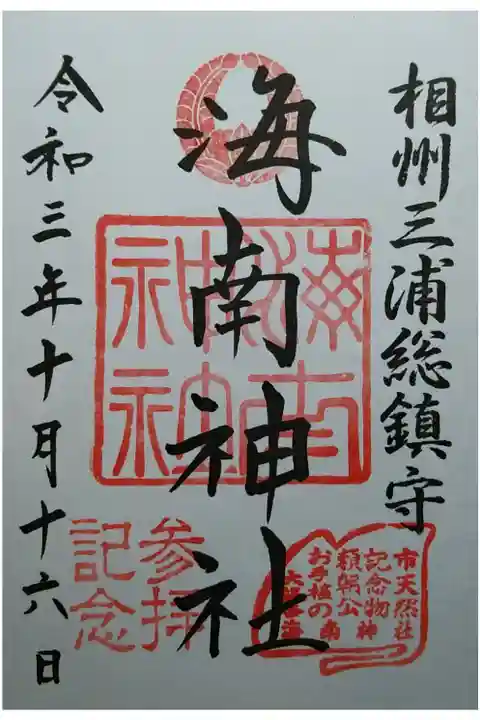 相州三浦総鎮守
海南神社
令和三年十月十六日
参拝
記念
市天然
記念物
頼朝公
お手植の